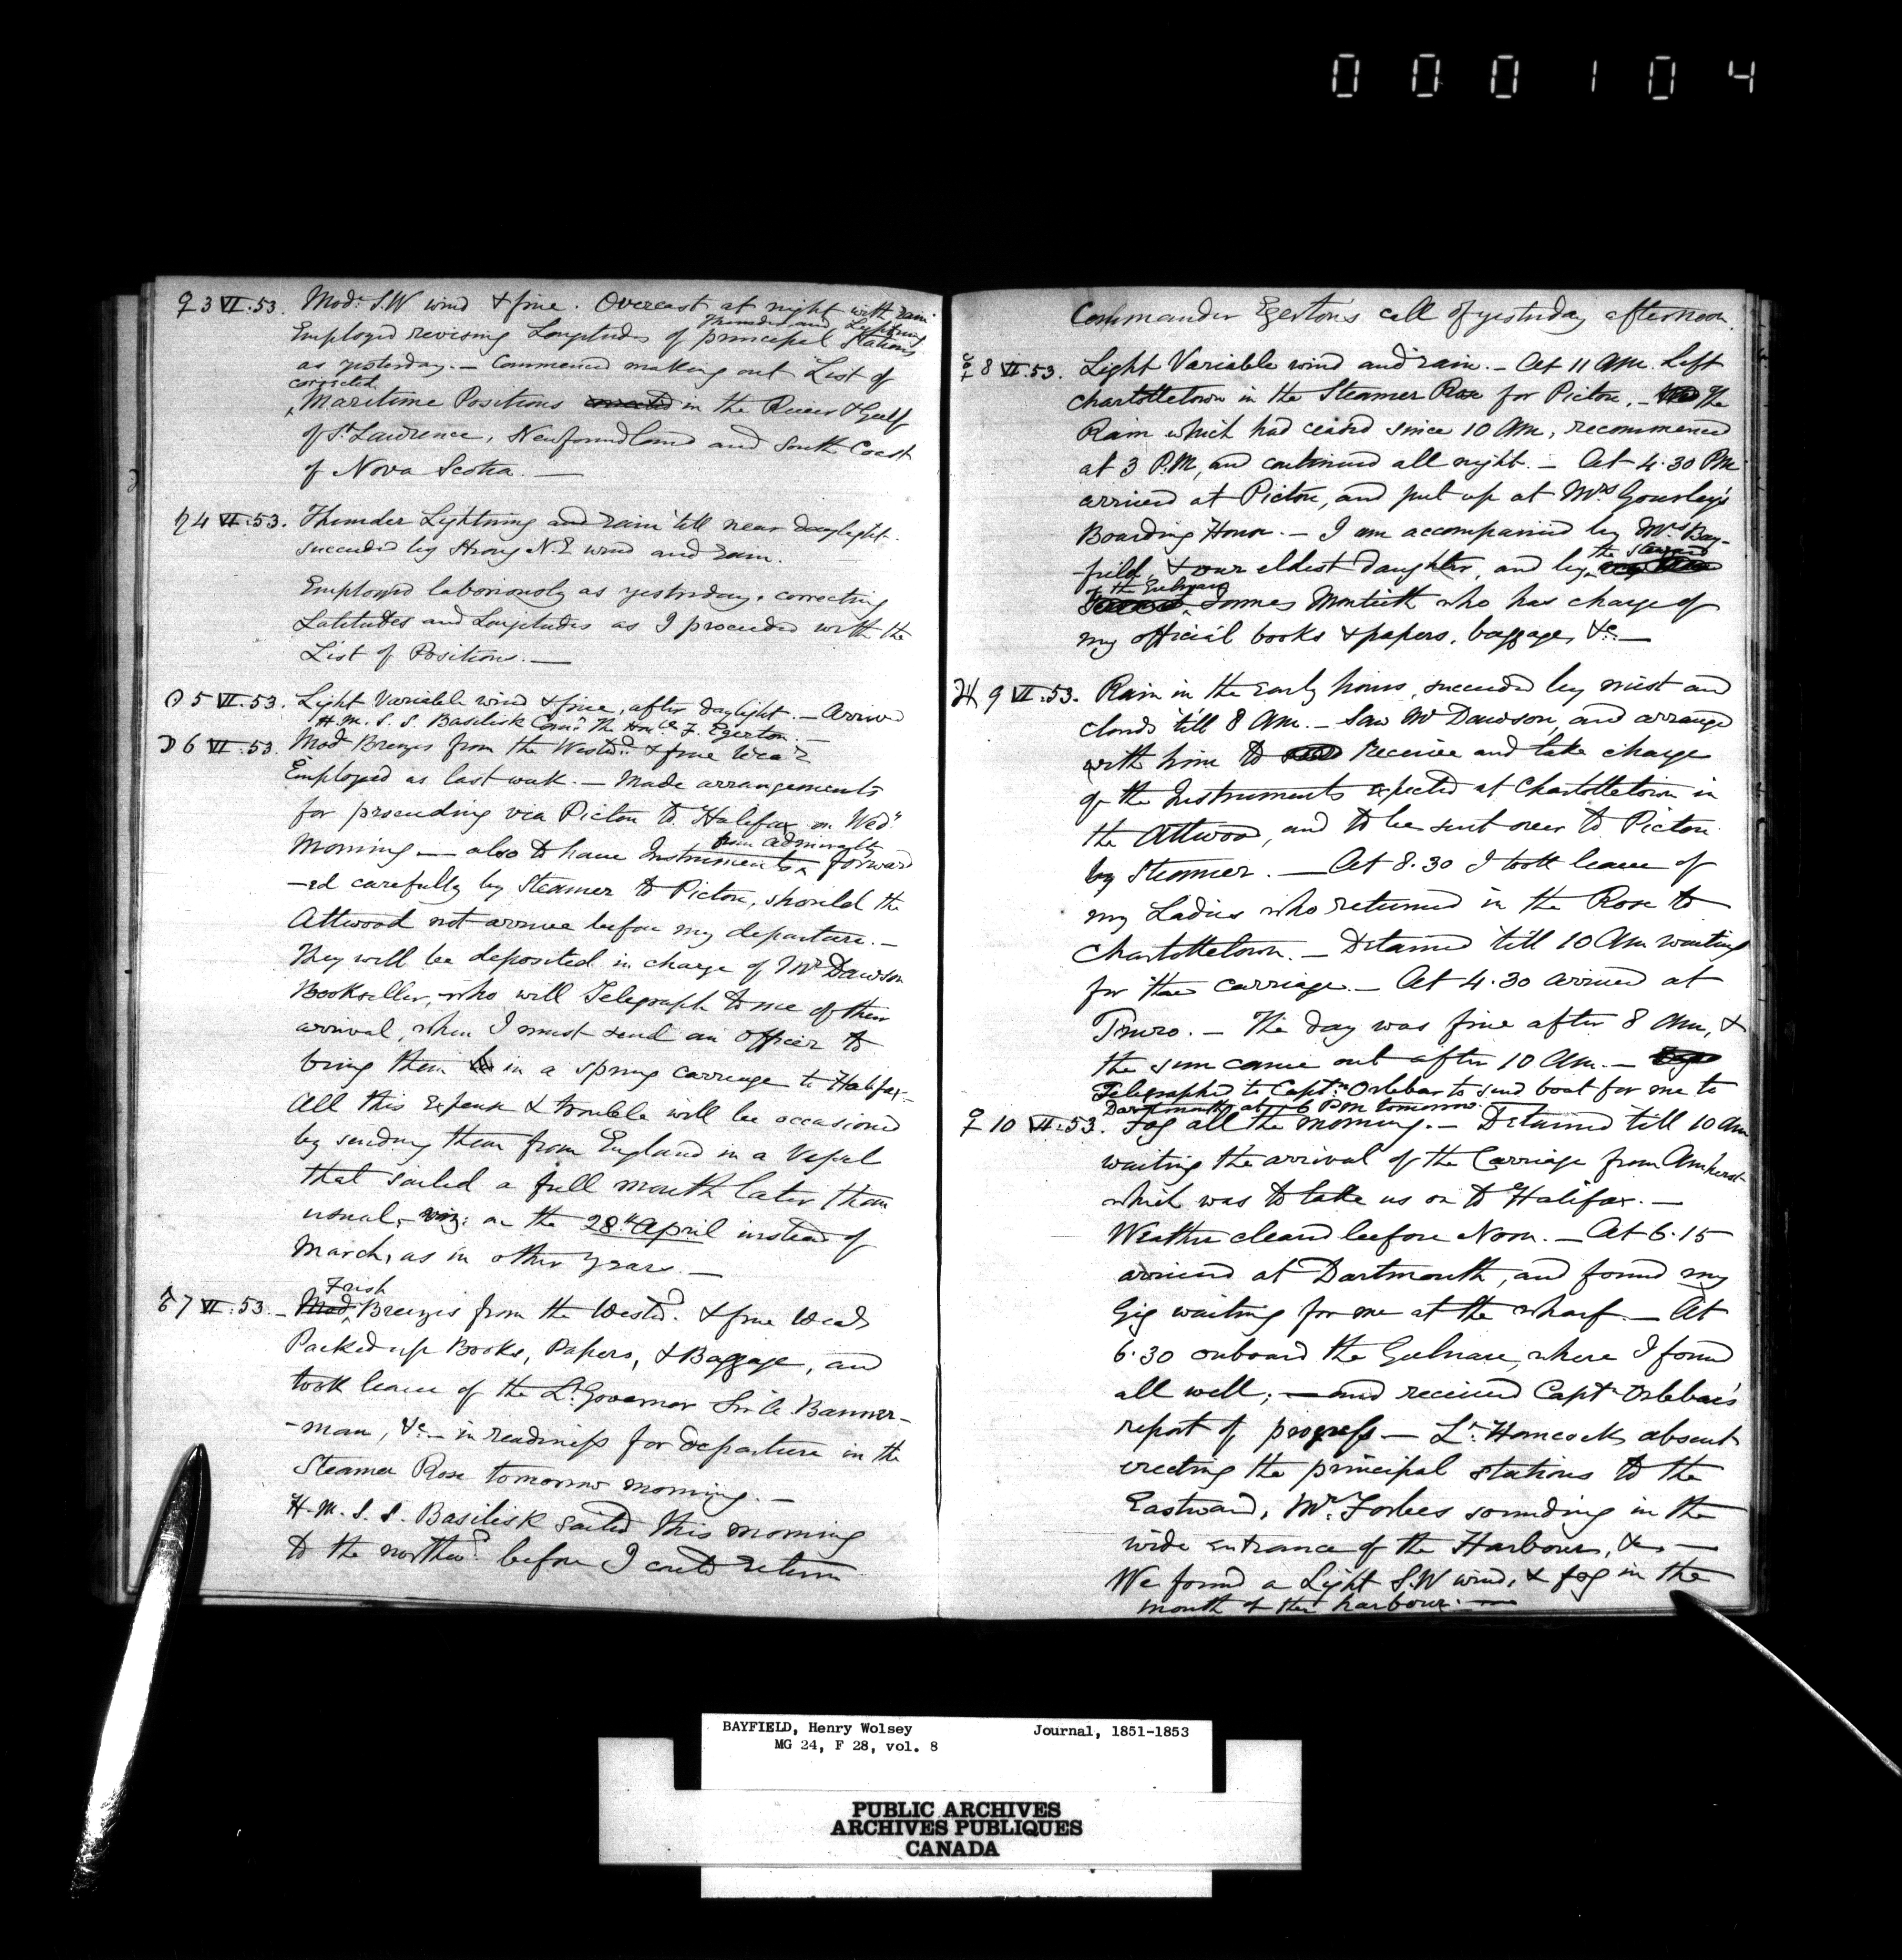 000104
♀ 3 VI. 53. Mod: S.W wind & fine. Overcast at night with rain
Thunder and Lightning
Employed revising Longitudes of principal Stations
as yesterday. — Commenced making out List of
corrected
Maritime Positions corrected in the River & Gulf
of St Lawrence, Newfoundland and South Coast
of Nova Scotia. —
♄ 4 VI. 53. Thunder Lightning and rain till near daylight.
succeeded by strong N.E wind and rain.
Employed laboriously as yesterday, correcting
Latitudes and Longitudes as I proceeded with the
List of Positions. —
☉ 5 VI. 53. Light Variable wind & fine, after daylight. — Arrived
H.M.S.S. Basilisk Comr The Honble F. Egerton. —
☽ 6 VI. 53. Mod Breezes from the Westd & fine Wear
Employed as last week. — Made arrangements
for proceeding via Pictou to Halifax on Wedy
from Admiralty
Morning — also to have Instruments forward
-ed carefully by Steamer to Pictou, should the
Attwood not arrive before my departure. —
They will be deposited in charge of Mr Dawson
Bookseller, who will Telegraph to me of their
arrival, when I must send an Officer to
bring them in a spring carriage to Halifax. —
All this Expense & trouble will be occasioned
by sending them from England in a Vessel
that sailed a full month later than
usual, viz: on the 28th April instead of
March, as in other years. —
Fresh
♂ 7 VI. 53. — Mod Breezes from the Westd. & fine Wear
Packed up Books, Papers, & Baggage, and
took leave of the Lt Governor Sir A Banner-
-man, &c — in readiness for departure in the
Steamer Rose tomorrow morning. —
H.M.S.S. Basilisk sailed this morning
to the northwd before I could return
Commander Egerton's call of yesterday afternoon.
☿ 8 VI. 53. Light Variable wind and rain. — At 11 AM left
Charlottetown in the Steamer Rose for Pictou. — The
Rain which had ceased since 10 AM, recommenced
at 3 P.M, and continued all night. — At 4.30 PM
arrived at Pictou, and put up at Mrs Gourley's
Boarding House. — I am accompanied by Mrs Bay-
the Steward
-field, & our eldest daughter, and by
of the Gulnare
James Monteith who has charge of
my official books & papers, baggage, &c. —
♃ 9 VI. 53. Rain in the early hours, succeeded by mist and
clouds 'till 8 AM. — Saw Mr Dawson, and arrange
with him to receive and take charge
of the Instruments expected at Charlottetown in
the Attwood, and to be sent over to Pictou
by Steamer. — At 8.30 I took leave of
my Ladies who returned in the Rose to
Charlottetown. — Detained 'till 10 AM waiting
for the carriage. — At 4.30 arrived at
Truro. — The day was fine after 8 AM, &
the sun came out after 10 AM. —
Telegraphed to Captn Orlebar to send boat for me to
Dartmouth at 6 PM tomorrow.
♀ 10 VI. 53. Fog all the morning. — Detained till 10 AM
waiting the arrival of the Carriage from Amherst
which was to take us on to Halifax. —
Weather cleared before Noon. — At 6.15
arrived at Dartmouth, and found my
Gig waiting for me at the wharf. — At
6.30 onboard the Gulnare, where I found
all well; — and received Captn Orlebar's
report of progress — Lt. Hancock absent
erecting the principal stations to the
Eastward, Mr. Forbes sounding in the
wide entrance of the Harbour, &c —
We found a Light S.W wind, & fog in the
mouth of the harbour. —
BAYFIELD, Henry Wolsey Journal, 1851-1853
MG 24, F 28, vol. 8
PUBLIC ARCHIVES
ARCHIVES PUBLIQUES
CANADA